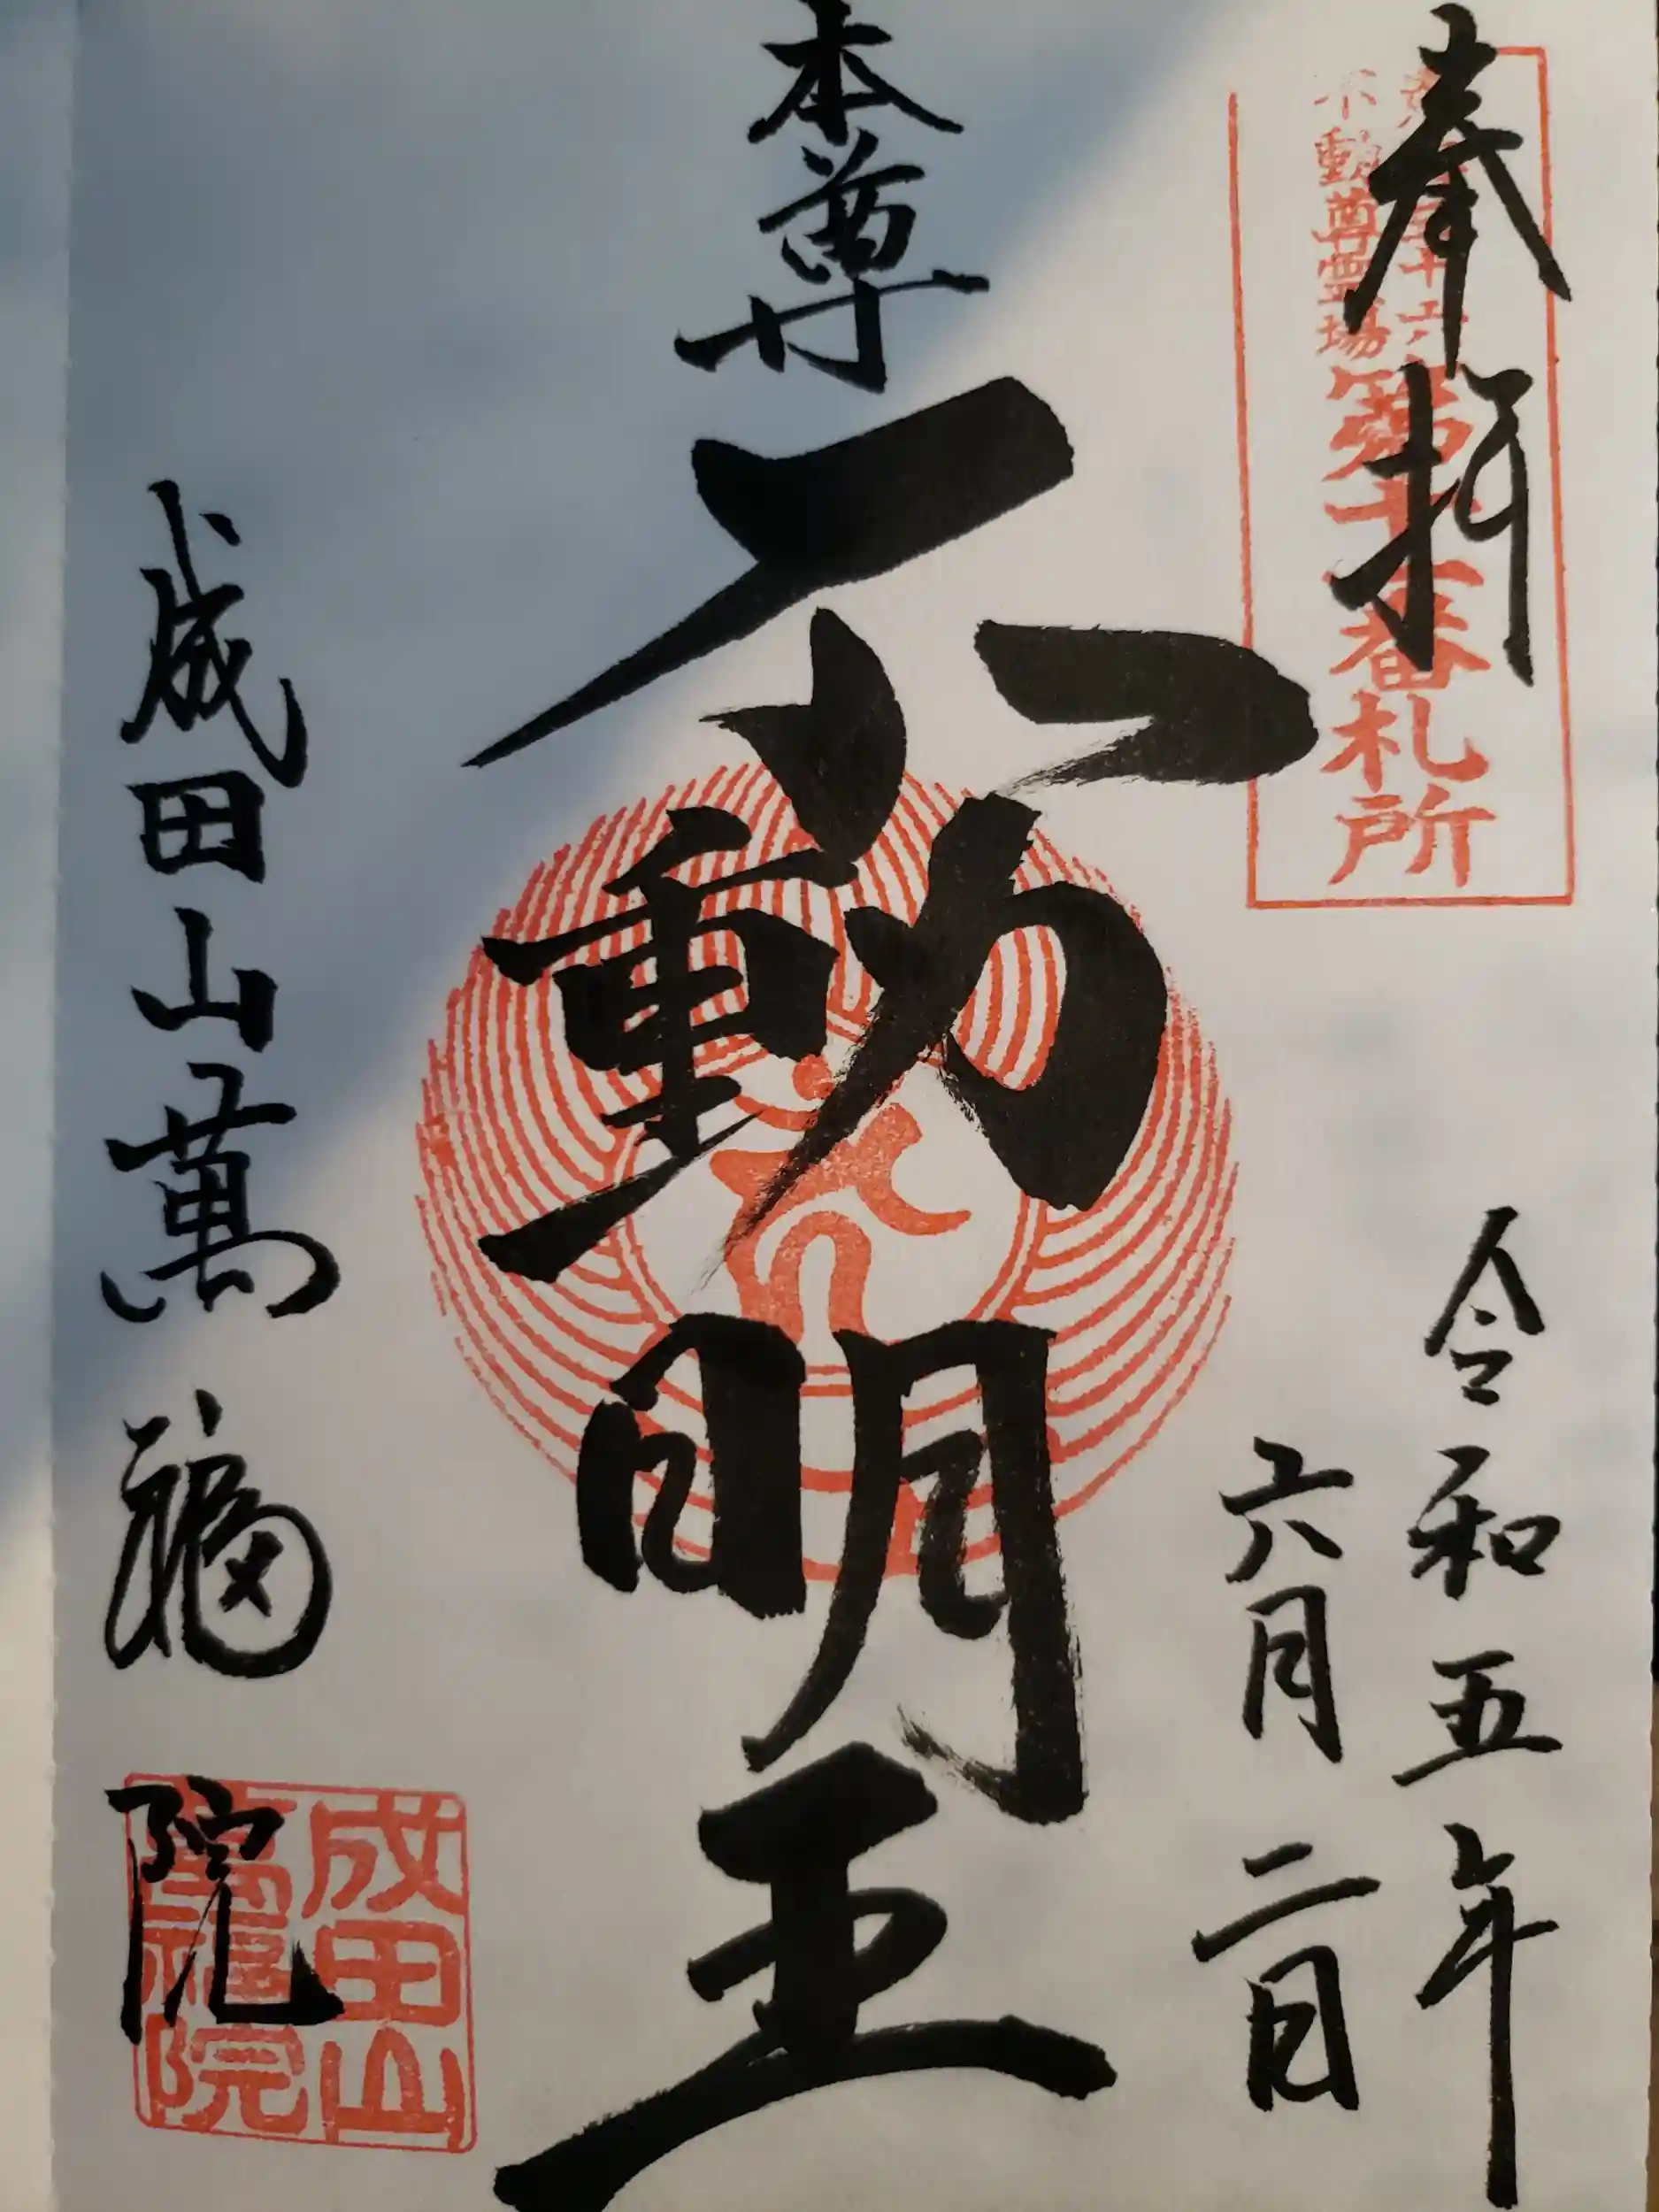 奉拝
不動尊霊場
番札所
令和五年
六月二日
本尊
不動明王
成田山萬福院
成田山
萬福院